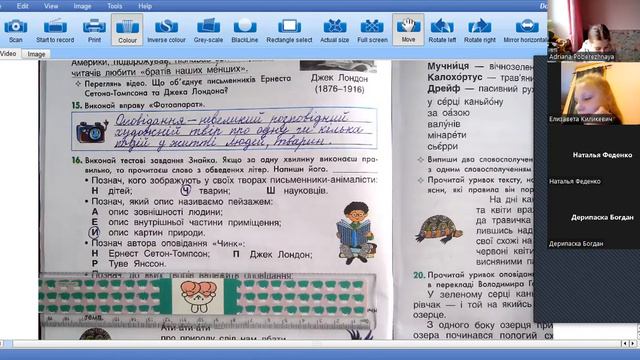 File Edit View Image Tools Help
Scan Start to record Print Colour Inverse colour Grey-scale BlackLine Rectangle select Actual size Full screen Move Rotate left Rotate right Mirror horizontal
Video Image
Америки, подорожував,
читачів любити «братів наших менших».
Переглянь відео. Що об'єднує письменників Ернеста
Сетона-Томпсона та Джека Лондона?
Джек Лондон
(1876–1916)
15. Виконай вправу «Фотоапарат».
Оповідання – невеликий розповідний
художній твір про одну чи кілька
подій у житті людей, тварин.
16. Виконай тестові завдання Знайка. Якщо за одну хвилину виконаєш пра-
вильно, то прочитаєш слово з обведених літер. Напиши його.
• Познач, кого зображують у своїх творах письменники-анімалісти:
Н дітей; Ч тварин; Ш науковців.
• Познач, який опис називаємо пейзажем:
А опис зовнішності людини;
Е опис внутрішньої частини приміщення;
И опис картин природи.
• Познач автора оповідання «Чинк»:
Н Ернест Сетон-Томпсон; П Джек Лондон;
Р Туве Янссон.
темп
Мучниця — вічнозелен
Калохортус — трав'яни
Дрейф — пасивний рух
у серці каньйону
за оазою
валунів
мінарети
сьєрри
Випиши два словосполучен
з одним словосполученням
Прочитай уривок тексту, на
ясни, які правила він пор
На дні кан
та квіти вра
да травичка
лившись над
свої схожі на
червоні квіт
висняними па
20. Прочитай уривок оповідан
в перекладі Володимира Г
У зеленому серці кань
рівчак — і той на якийсь
озерце.
З одного боку озерця при
озера починався пологий сх
Adriana Poberezhnaya
Елизавета Киликевич
Наталья Феденко
Наталья Феденко
Дерипаска Богдан
Дерипаска Богдан